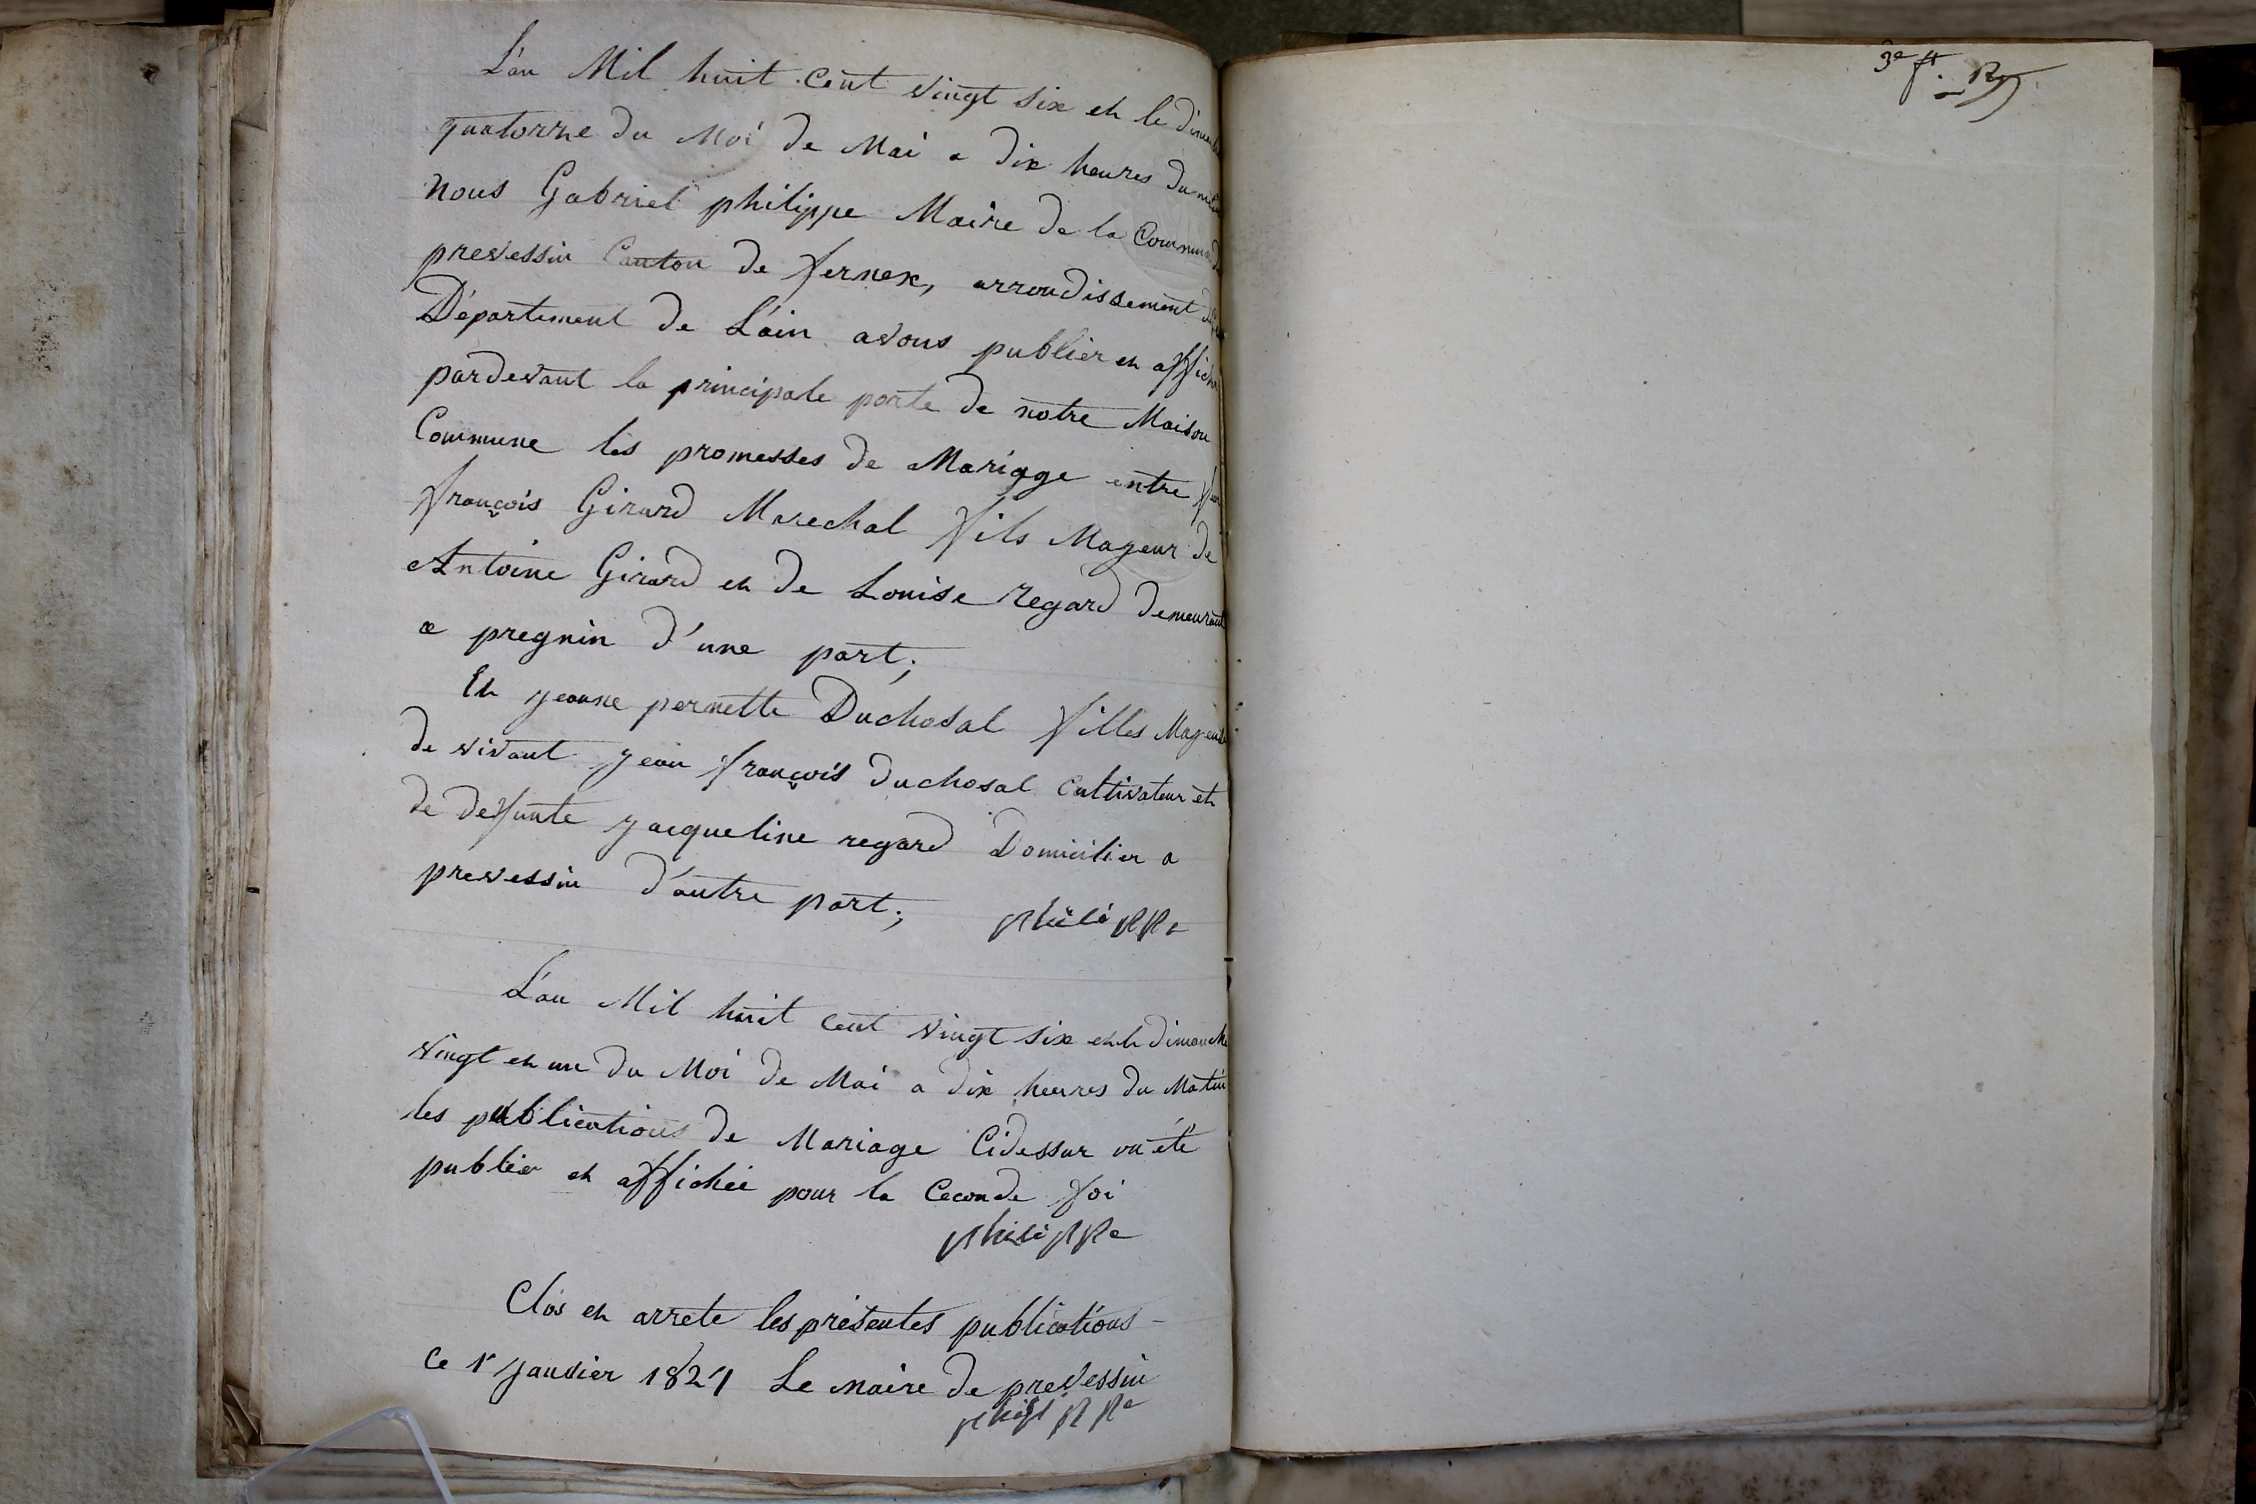 L'an Mil huit Cent vingt six et le dimanche
quatorze du Moi de Mai a dix heures du matin
nous Gabriel philippe Maire de la Commune de
prevessin Canton de fernex, arrondissement de
Département de L'ain avons publier et affiché
pardevant la principale porte de notre Maison
Commune les promesses de Mariage entre
françois Girard Marechal fils Majeur de
Antoine Girard et de Louise regard demeurant
a pregnin d'une part;
Et jeanne pernette Duchosal filles Majeure
de vivant jean françois duchosal Cultivateur et
de defunte jacqueline regard Domicilier a
prevessin d'autre part; philippe
L'an Mil huit cent vingt six et le dimanche
vingt et un du Moi de Mai a dix heures du Matin
les publications de Mariage Cidessur on été
publier et affichée pour la Ceconde foi
philippe
Clos et arrete les présentes publications
Ce 1r janvier 1827 Le maire de prevessin
philippe
3e ft.